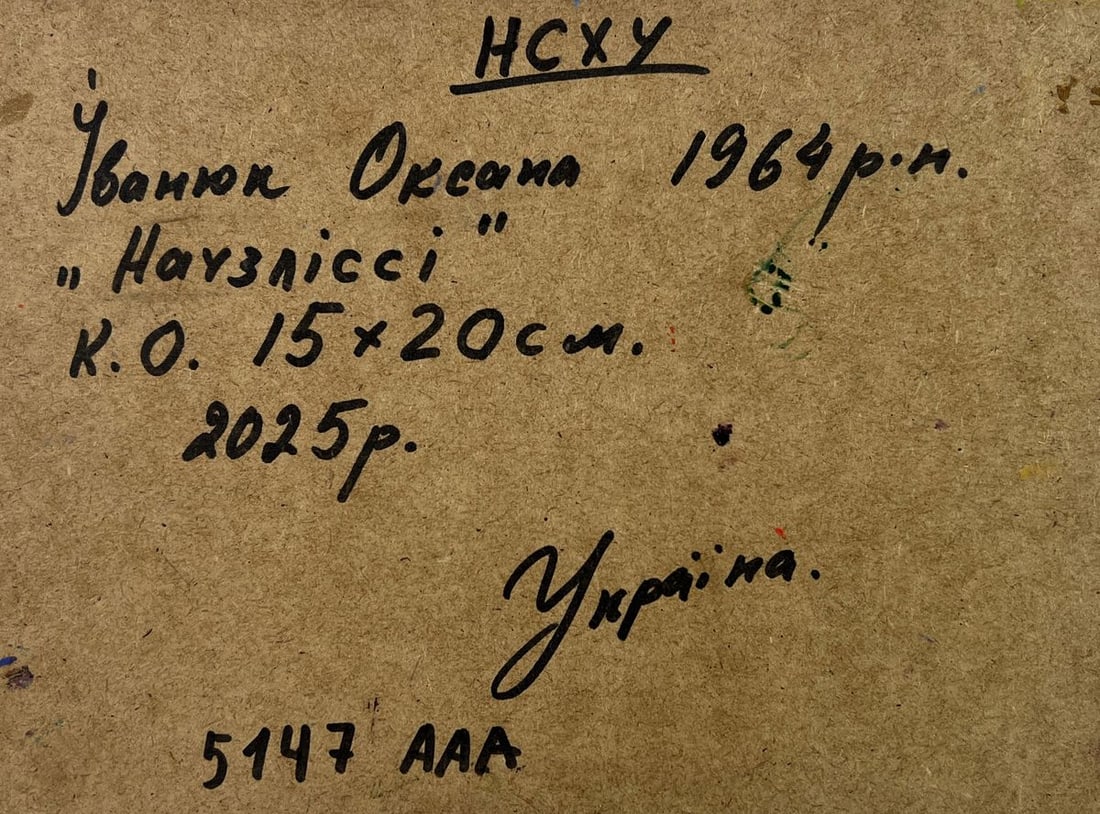 НСХУ
Іванюк Оксана 1964 р.н.
„ Наузліссі "
к.О. 15×20см.
2025р.
Україна.
5147 ААА